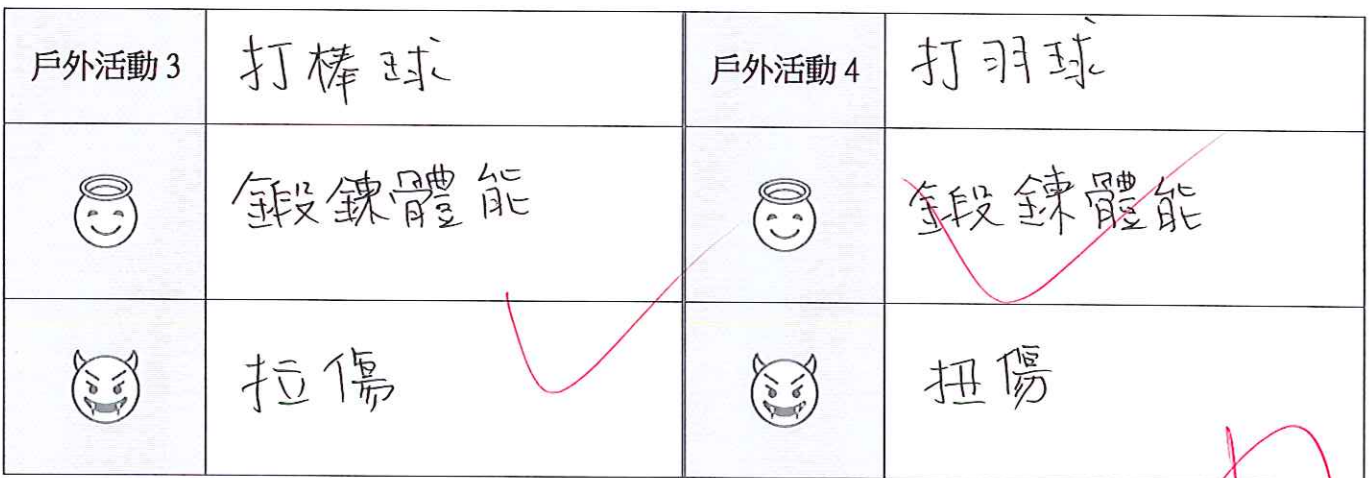 戶外活動 3 打棒球 戶外活動 4 打羽球
鍛鍊體能 鍛鍊體能
拉傷 扭傷